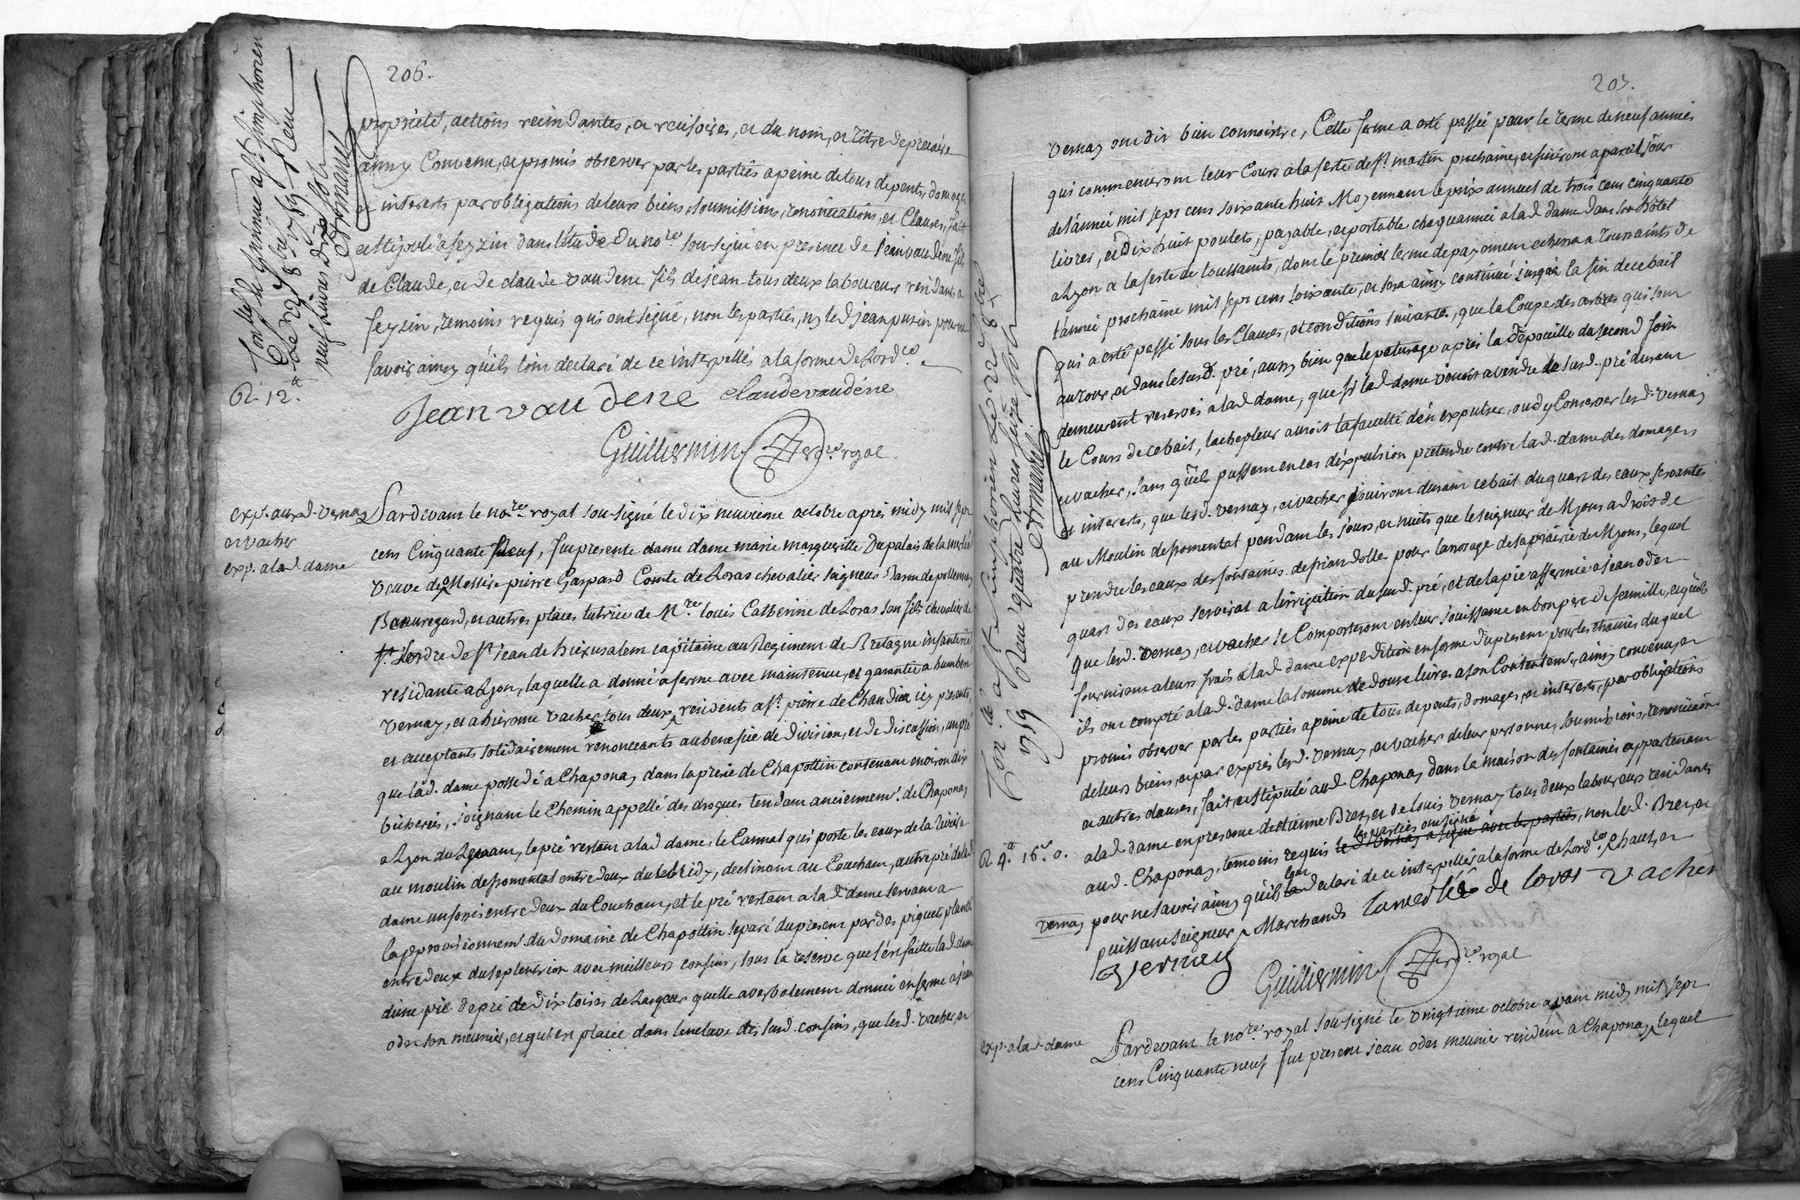 206.
propriété, actions rescindantes, et rescisoires, et du nom, et titre de precaire
ainsy Convenu, et promis observer par les parties a peine de tous depents, domages
et interests par obligations de leurs biens, soumissions, renonciations, et Clauses, fait
et stipulé a feyzin dans l'étude du no.re sousigné en presence de jean vaudene fils
de Claude, et de claude vaudene fils de jean tous deux laboureurs residants a
feyzin, temoins requis qui ont signé, non les parties, ny led. jean puzin pour ne
savoir ainsy qu'ils l'ont declaré de ce interpellés a la forme de l'ord.ce
R. 12.
Jean vaudene claude vaudene
Guilliermin no.re royal.
exp. aux d. vernay
et vacher
exp. a lad. dame
Pardevant le no.re royal sousigné le dix neuvieme octobre apres midy mil sept
cens Cinquante neuf, fut presente dame dame marie marguerite Dupalais de la
veuve de Messire pierre Gaspard Comte de Loras chevalier seigneur
Beauregard, et autres places tutrice de M.re louis Catherine de Loras son fils chevalier de
l'ordre de S.t jean de hierusalem capitaine au Regiment de Bretagne infanterie
residante a Lyon, laquelle a donné a ferme avec maintenue, et garantie a humbert
vernay, et a hierome vacher tous deux residents a S.t pierre de Chandieu icy presents
et acceptants solidairement renonceants au benefice de division, et de discussion, un pré
que lad. dame possede a Chaponay dans la prerie de Chapottin contenant environ dix
bicherées, joignant le Chemin appellé des droques tendant anciennem.t de Chaponay
a Lyon du levant, le pré restant a lad. dame, le Cannal qui porte les eaux de la riviere
au moulin de fromentat entre deux du midy, declinant au Couchant, autre pré de lad.
dame un fossé entre deux du Couchant, et le pré restant a lad. dame servant a
l'approvisionnem.t du domaine de Chapottin separé du present par des piquets plantés
entre deux du septentrion avec meilleurs confins, sous la reserve que s'est faitte lad. dame
d'une pie de pré de dix toises de largeur qu'elle a verbalement donnée en ferme a jean
oder son meunier, et qui en placée dans l'enclave des susd. confins, que lesd. vacher, et
207.
vernay ont dit bien connoistre, Cette ferme a esté passée pour le terme de neuf années
qui commenceront leur Cours a la feste de S.t martin prochaine, et finiront a pareil jour
de l'année mil sept cens soixante huit Moyennant le prix annuel de trois cens cinquante
livres, et dix huit poulets, payable, et portable chaque année a lad. dame dans son hôtel
a Lyon a la feste de toussaints, dont le premier terme de payement echerra a Toussaints de
l'année prochaine mil sept cens soixante, et sera ainsy continué jusqu'a la fin de ce bail
qui a esté passé sous les Clauses, et conditions suivantes, que la Coupe des arbres qui sont
autour, et dans le susd. pré, aussy bien que le paturage apres la dépouille du second foin
demeurent reservés a lad. dame, que si lad. dame venoit a vendre le susd. pré durant
le Cours de ce bail, l'achepteur auroit la faculté d'en expulser, ou d'y Conserver lesd. vernay
et vacher, sans qu'ils puissent en cas d'expulsion pretendre contre lad. dame des domages
et interests, que lesd. vernay, et vacher jouiront durant ce bail du quart des eaux servantes
au Moulin de fromentat pendant les jours, et nuits que le seigneur de Mions a droit de
prendre les eaux des fontaines de friandolles pour l'arrosage de la prairie de Myons, lequel
quart des eaux servirat a l'irrigation du susd. pré, et de la pie affermée a jean oder
que lesd. vernay, et vacher se Comporteront en leur jouissance en bon pere de famille, et qu'ils
fourniront a leurs frais a lad. dame expedition en forme du present pour les
ils ont compté a lad. dame la somme de douze livres a son Contentem.t, ainsy convenu, et
promis observer par les parties a peine de tous depents, domages, et interests, par obligations
de leurs biens, et par exprès lesd. vernay, et vacher de leur personnes, soumissions, renonciations
et autres clauses, fait et stipulé aud. Chaponay dans la maison des fontaines appartenant
a lad. dame en presence d'estienne Bret, et de louis vernay tous deux laboureurs residants
aud. Chaponay, temoins requis les parties ont signé, non led. Bret, et
vernay pour ne savoir ainsy qu'ils l'ont declaré de ce interpellés a la forme de l'ord.ce haut, et
puissant seigneur Marchands la
R. 4. 16. 0.
de loras vacher
vernay
Guilliermin no.re royal
exp. a lad. dame
Pardevant le no.re royal sousigné le vingtieme octobre avant midy mil sept
cens Cinquante neuf fut present jean oder meunier resident a Chaponay, lequel